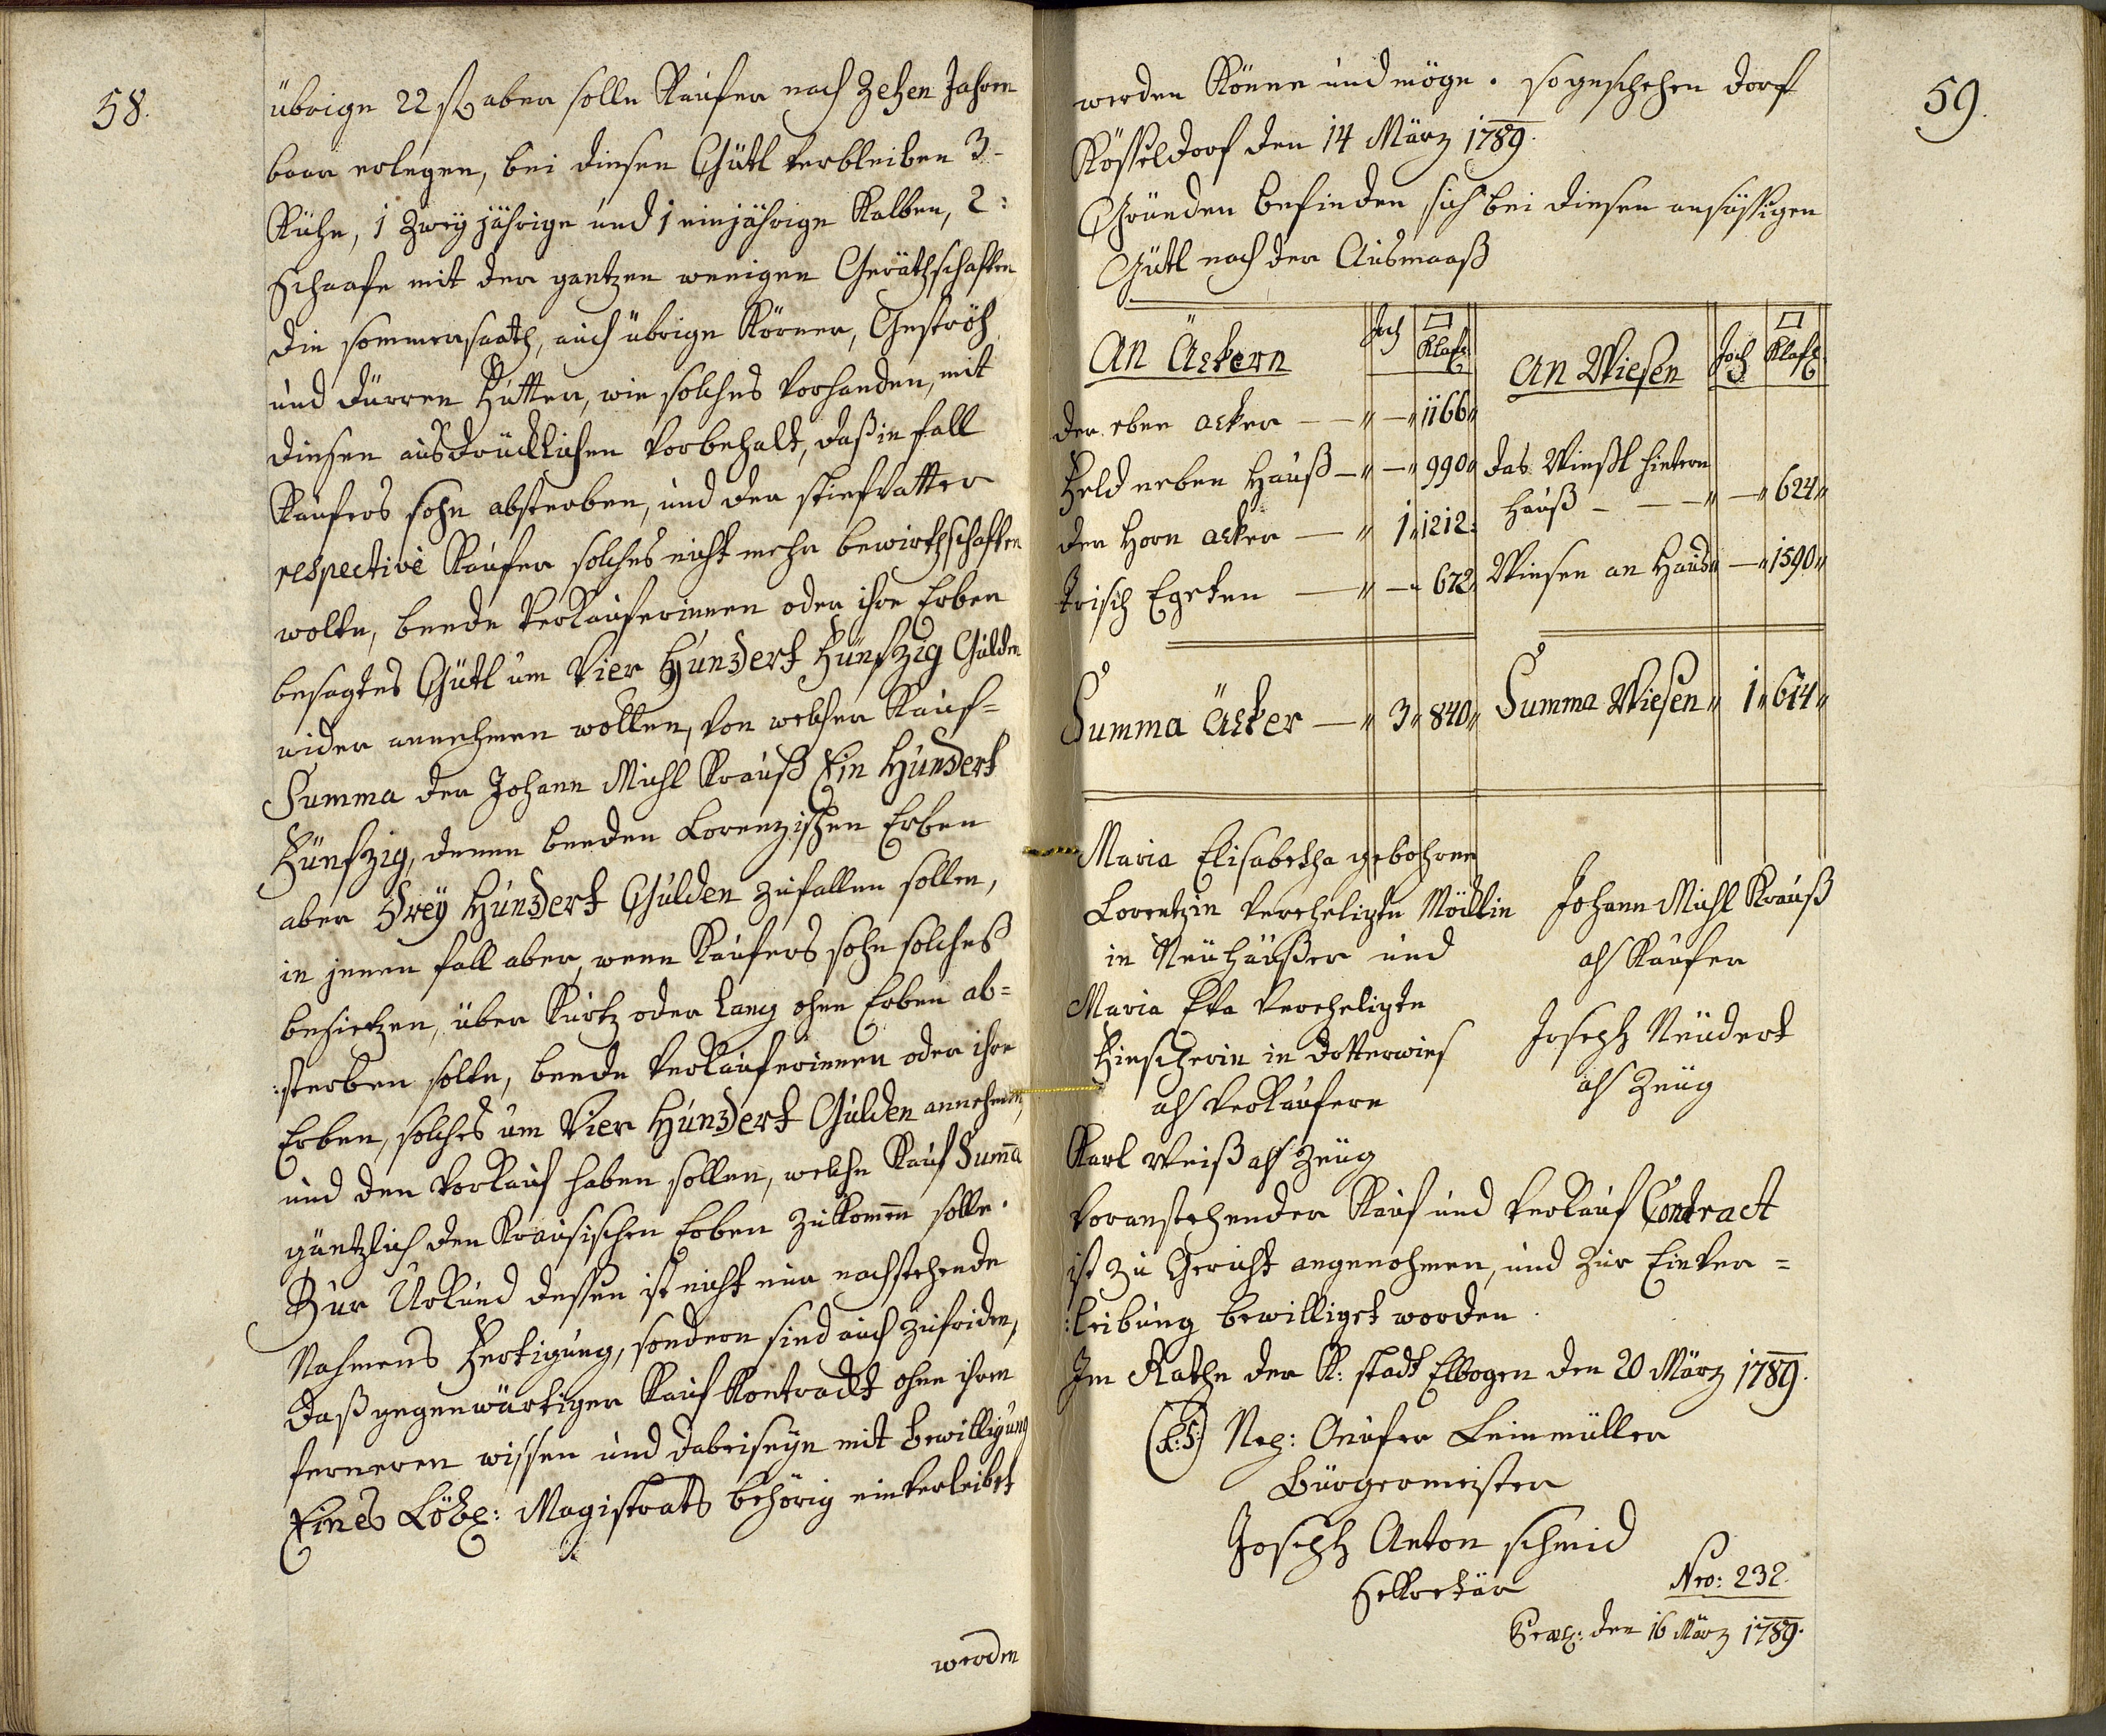 58.
übrige 22 f aber solle Kaufer nach Zehen Jahren
baar erlegen, bei diesen Gütl verbleiben 3
Kühe, 1 Zweÿ jährige und 1 einjährige Kalben, 2:
Schaafe mit der gantzen wenigen Geräthschaften,
die sommersaath, auch übrige Körner, Geströh
und dürren Futter, wie solches vorhanden, mit
diesen ausdrücklichen Vorbehalt, daß in fall
Kaufers sohn absterben, und der stiefvatter
respective Kaufer solches nicht mehr bewirthschaften
wolte, beede Verkauferinnen oder ihre Erben
besagtes Gütl um Vier Hundert Fünfzig Gulden
wider annehmen wolten, von welcher Kauf=
Summa der Johann Michl Krauß Ein Hundert
Fünfzig, denen beeden Lorenzischen Erben
aber Dreÿ Hundert Gulden zufallen sollen,
in jenen fall aber, wenn Kaufers sohn solches
besietzen, über Kurtz oder lang ohne Erben ab=
:sterben solte, beede Verkauferinnen oder ihre
Erben, solches um Vier Hundert Gulden annehmen,
und den Vorkauf haben sollen, welche Kauf Suma
gäntzlich den Krausischen Erben zukommen solle.
Zur Urkund dessen ist nicht nur nachstehende
Nahmens Fertigung, sondern sind auch zufriden,
daß gegenwärtiger Kauf Kontrackt ohne ihren
ferneren wissen und dabeiseÿn mit Bewilligung
Eines Löbl: Magistrats behörig einverleibet
werden
59.
werden Könne und möge. so geschehen Dorf
Kösteldorf den 14 März 1789.
Gründen befinden sich bei diesen ansäßigen
Gütl nach der Ausmaaß
An Äckern Joch □ Klaft An Wiesen Joch □ Klaft
der eben acker — " — " 1166 "
Feld neben Hauß — " — " 990 " das Wießl hintern
der Horn acker — " 1 " 1212 : Hauß — — " — " 624 "
Trisch Egrten — " — " 672 " Wiesen an Haus " — " 1590 "
Summa Äcker — " 3 " 840 " Summa Wiesen " 1 " 614 "
Maria Elisabetha gebohrne
Lorentzin Vereheligte Möcklin Johann Michl Krauß
in Neuhäußer und als Kaufer
Maria Eva Vereheligte
Fischerin in Dotterwies Joseph Neudert
als Verkaufern als Zeug
Karl Weiß als Zeug
Voranstehender Kauf und Verkauf Contract
ist zu Gericht angenohmen, und zur Einver=
:leibung bewilliget worden.
Im Rathe der K: stadt Elbogen den 20 März 1789.
(L:S:) Nep: Onufer Leinmüller
Bürgermeister
Joseph Anton schmid
Sekretär Nro: 232.
den 16 März 1789.